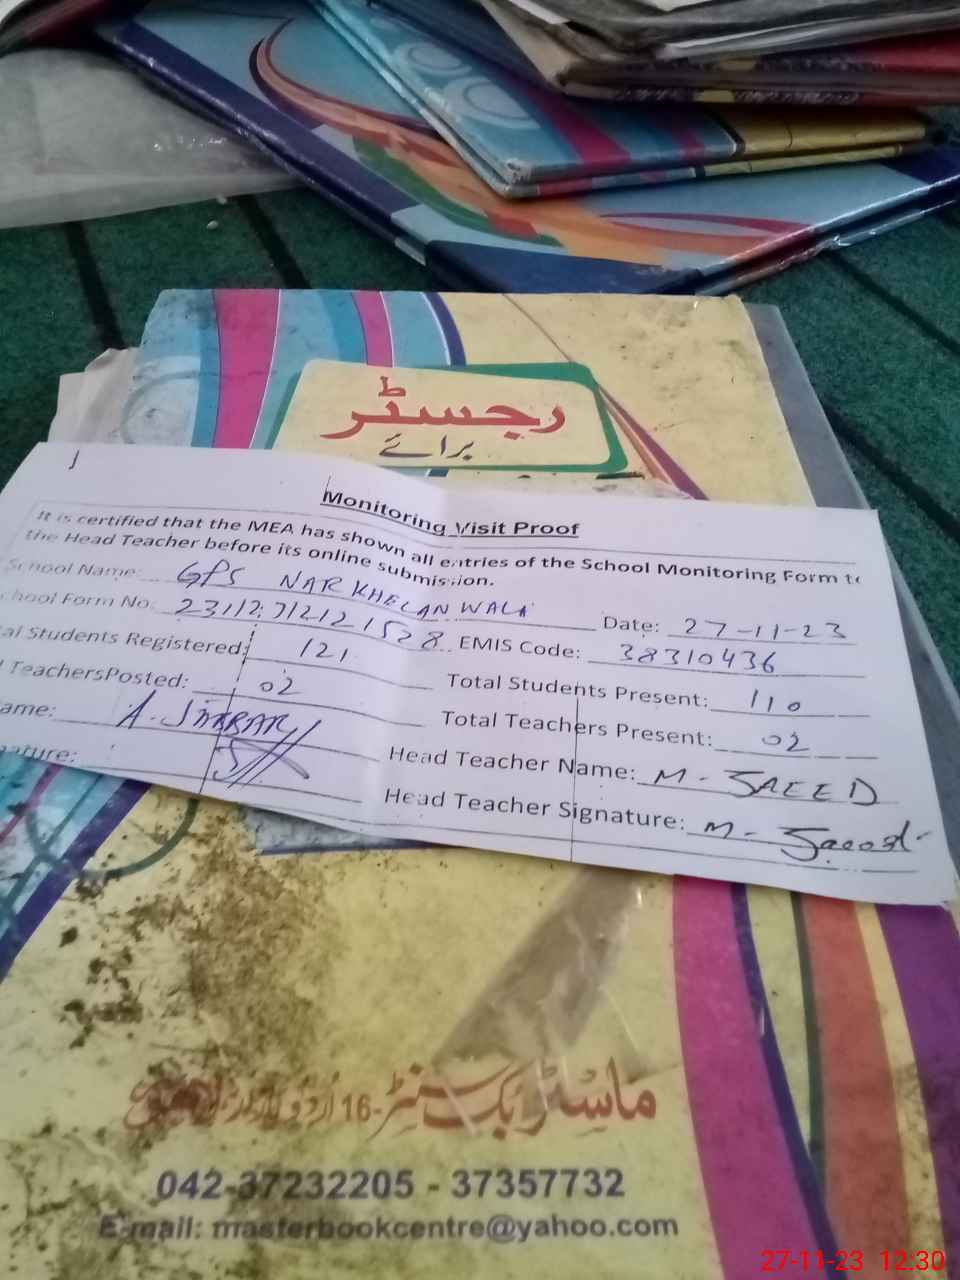 رجسٹر
برائے
Monitoring Visit Proof
It is certified that the MEA has shown all entries of the School Monitoring Form to
the Head Teacher before its online submission.
School Name: GPS NAR KHELAN WALA Date: 27-11-23
hool Form No: EMIS Code: 38310436
al Students Registered: 121 Total Students Present: 110
TeachersPosted: 02 Total Teachers Present: 02
ame: A. JABBAR Head Teacher Name: M. SAEED
nature: Head Teacher Signature: M. Saeed
ماسٹر بک سنٹر 16-اردو بازار لاہور
042-37232205 - 37357732
E-mail: masterbookcentre@yahoo.com
27-11-23 12:30